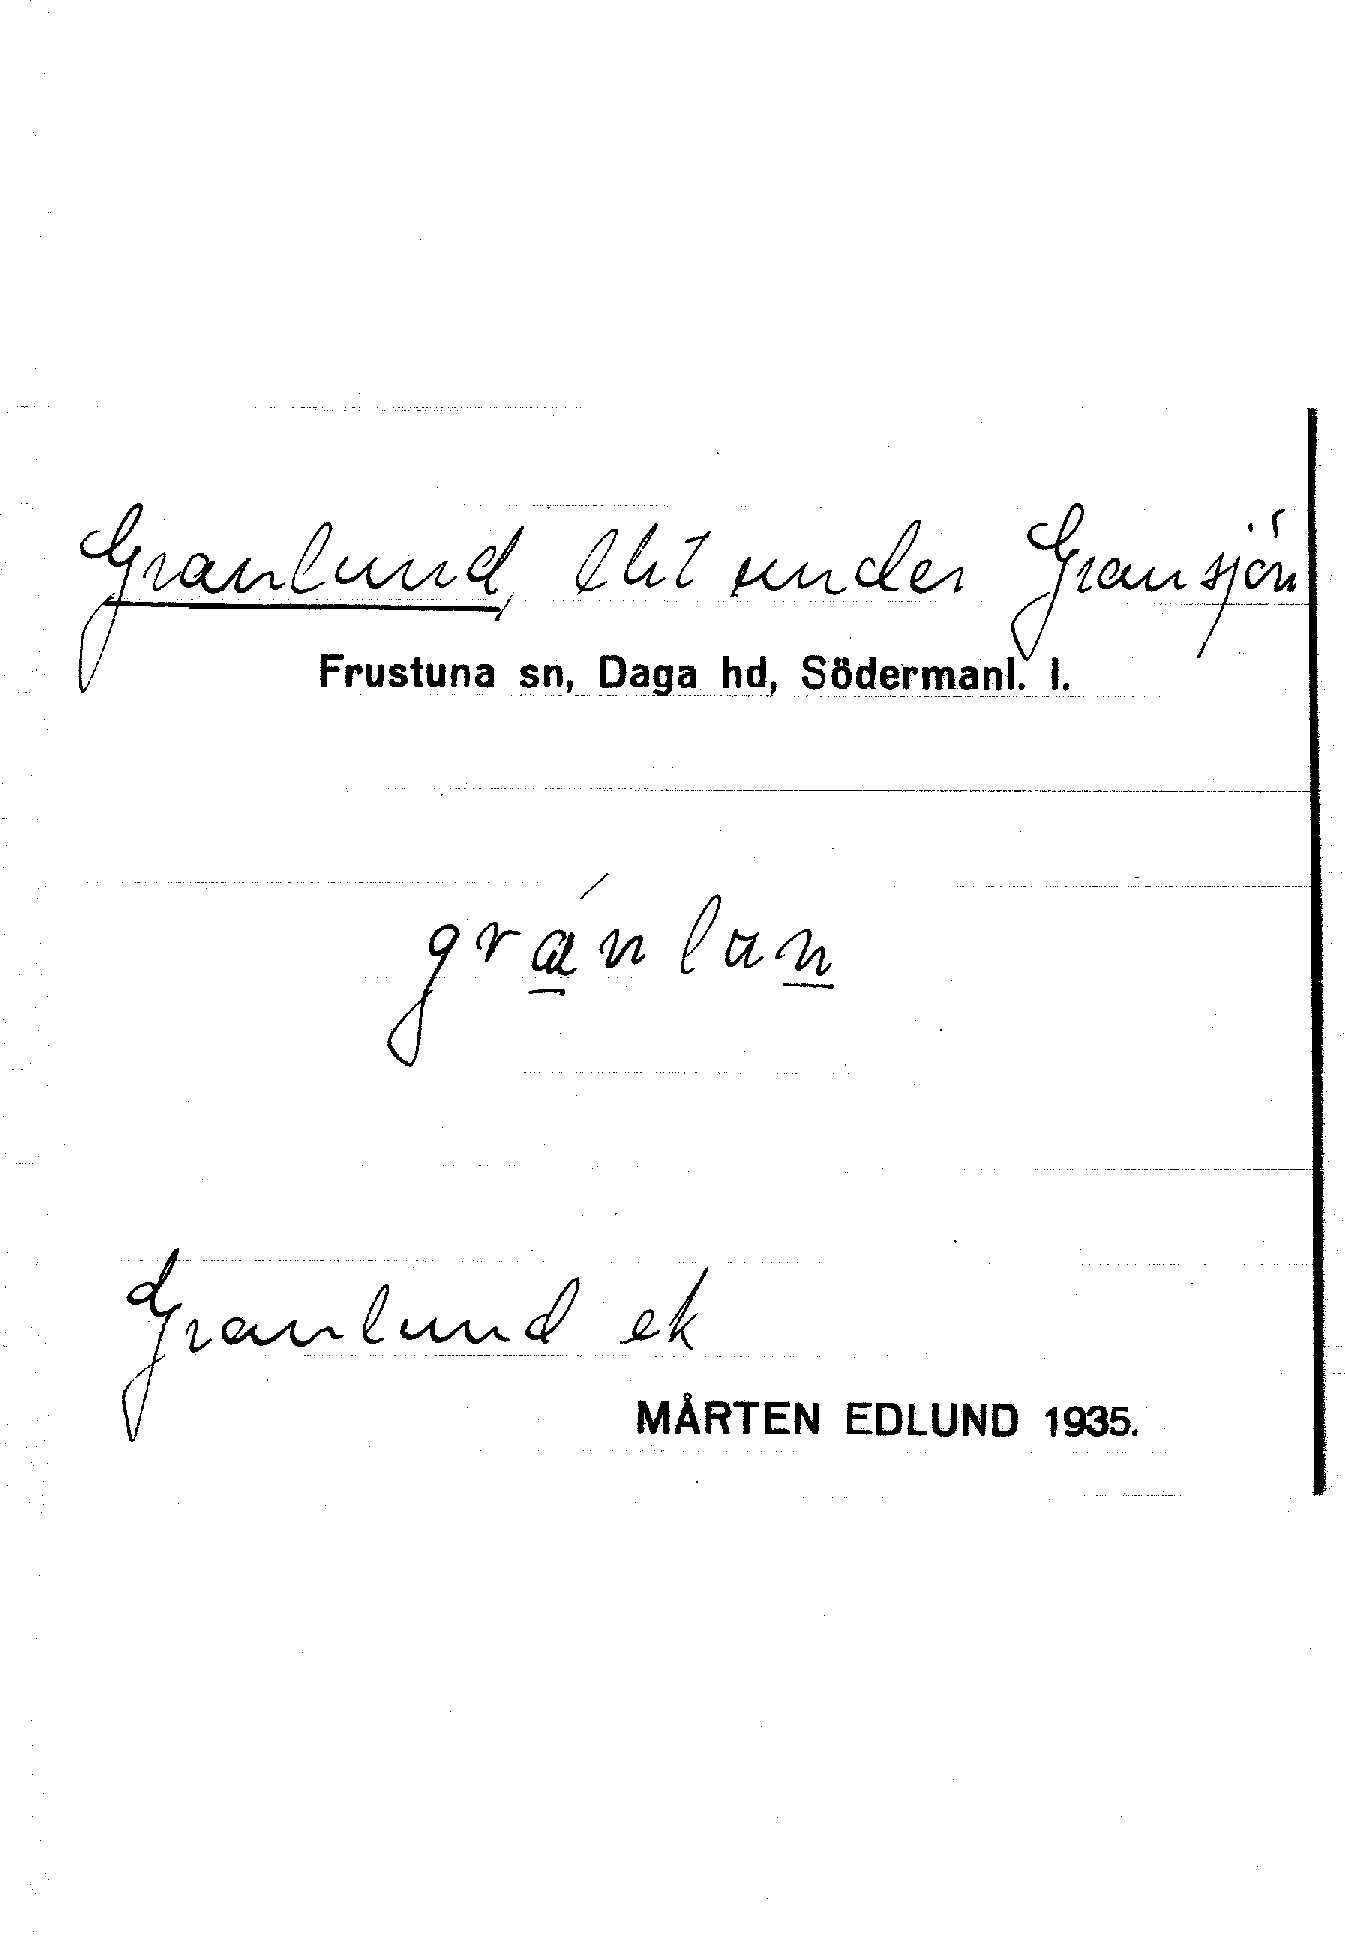 Granlund, lht under Gransjön
Frustuna sn, Daga hd, Södermanl. l.
gránlan
Granlund ek
MÅRTEN EDLUND 1935.